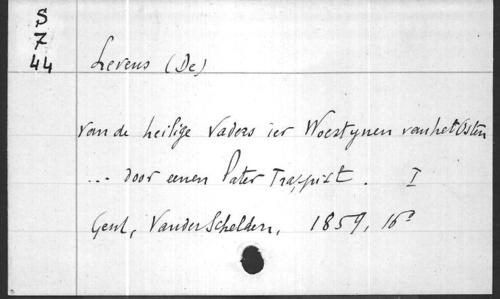 S
7
44
Levens (De)
van de heilige vaders der Woestynen van het Osten
... door eenen Pater Trappist. I
Gent, Vander Schelden, 1859, 16°